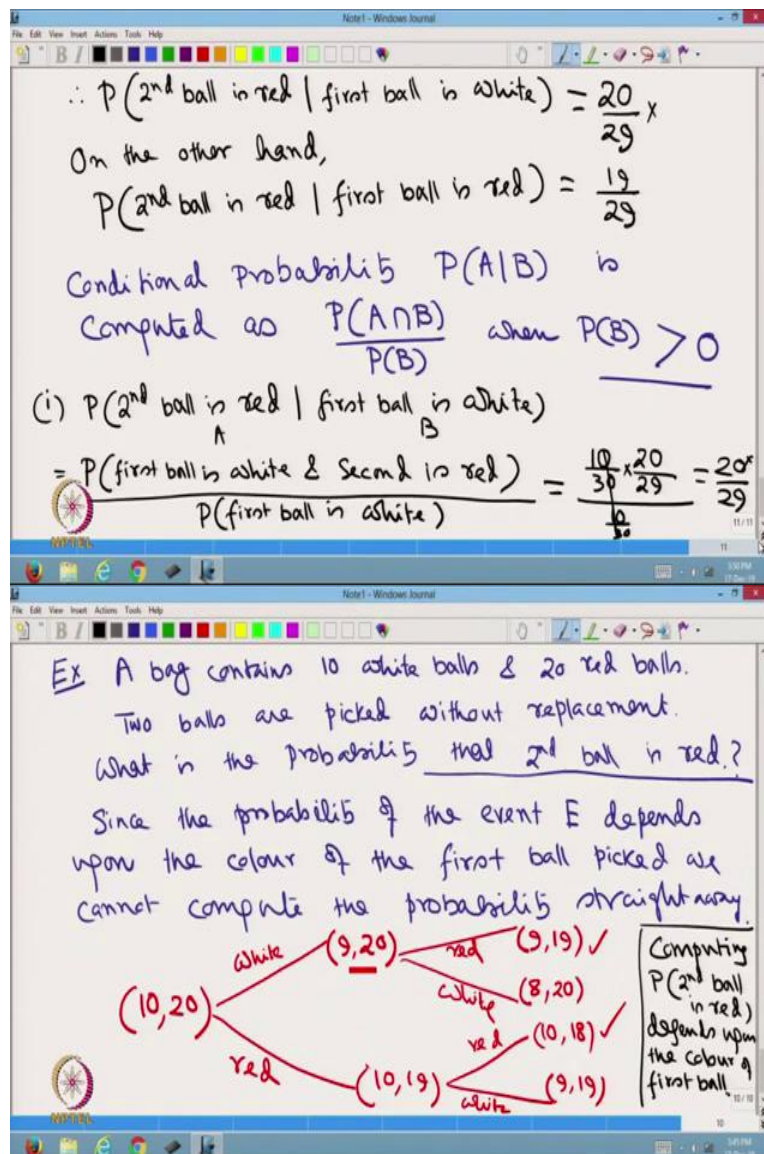 Note1 - Windows Journal
File Edit View Insert Actions Tools Help
∴ P(2nd ball is red | first ball is white) = 20/29 ×
On the other hand,
P(2nd ball is red | first ball is red) = 19/29
Conditional Probability P(A|B) is
Computed as P(A∩B)/P(B) when P(B) > 0
(i) P(2nd ball is red | first ball is white)
A B
= P(first ball is white & Second is red)/P(first ball is white) = (10/30 × 20/29)/(10/30) = 20/29 ×
NPTEL
11/11
11
5:50 PM
17-Dec-18
Note1 - Windows Journal
File Edit View Insert Actions Tools Help
Ex A bag contains 10 white balls & 20 red balls.
Two balls are picked without replacement.
What is the probability that 2nd ball is red.?
Since the probability of the event E depends
upon the colour of the first ball picked we
cannot compute the probability straightaway.
white (9,20) red (9,19) ✓
white (8,20)
(10,20)
red (10,19) red (10,18) ✓
white (9,19)
Computing
P(2nd ball
is red)
depends upon
the colour of
first ball.
NPTEL
10/10
10
5:45 PM